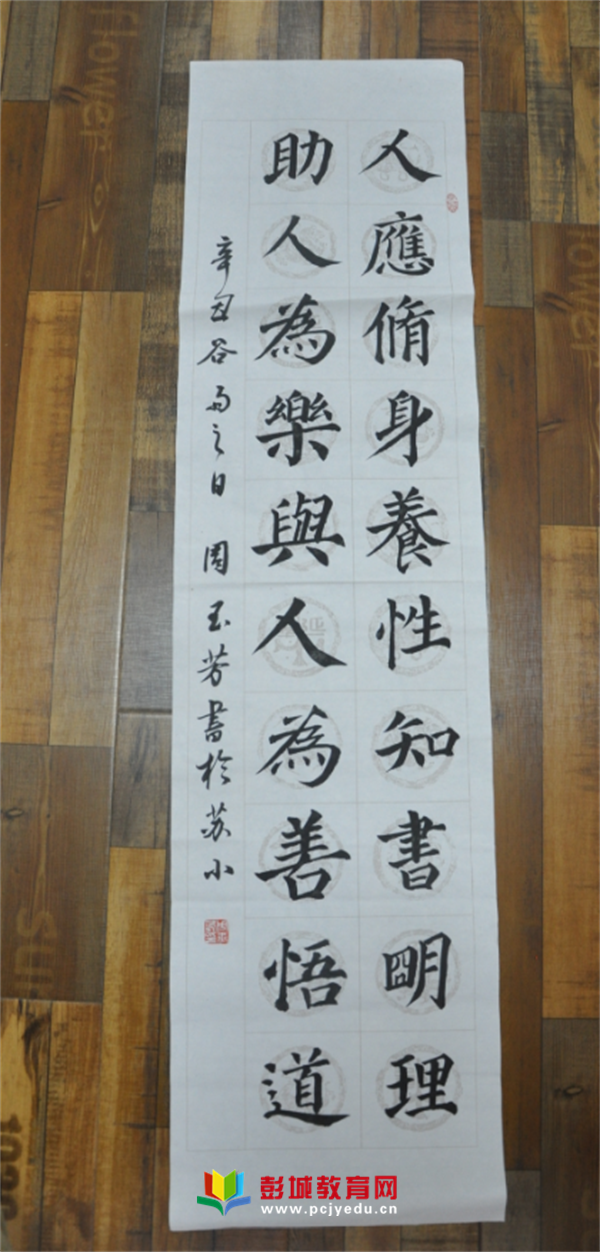 人應脩身養性知書明理
助人為樂與人為善悟道
辛丑谷雨之日 周玉芳書於苏小
彭城教育网
www.pcjyedu.cn
flower
SUN